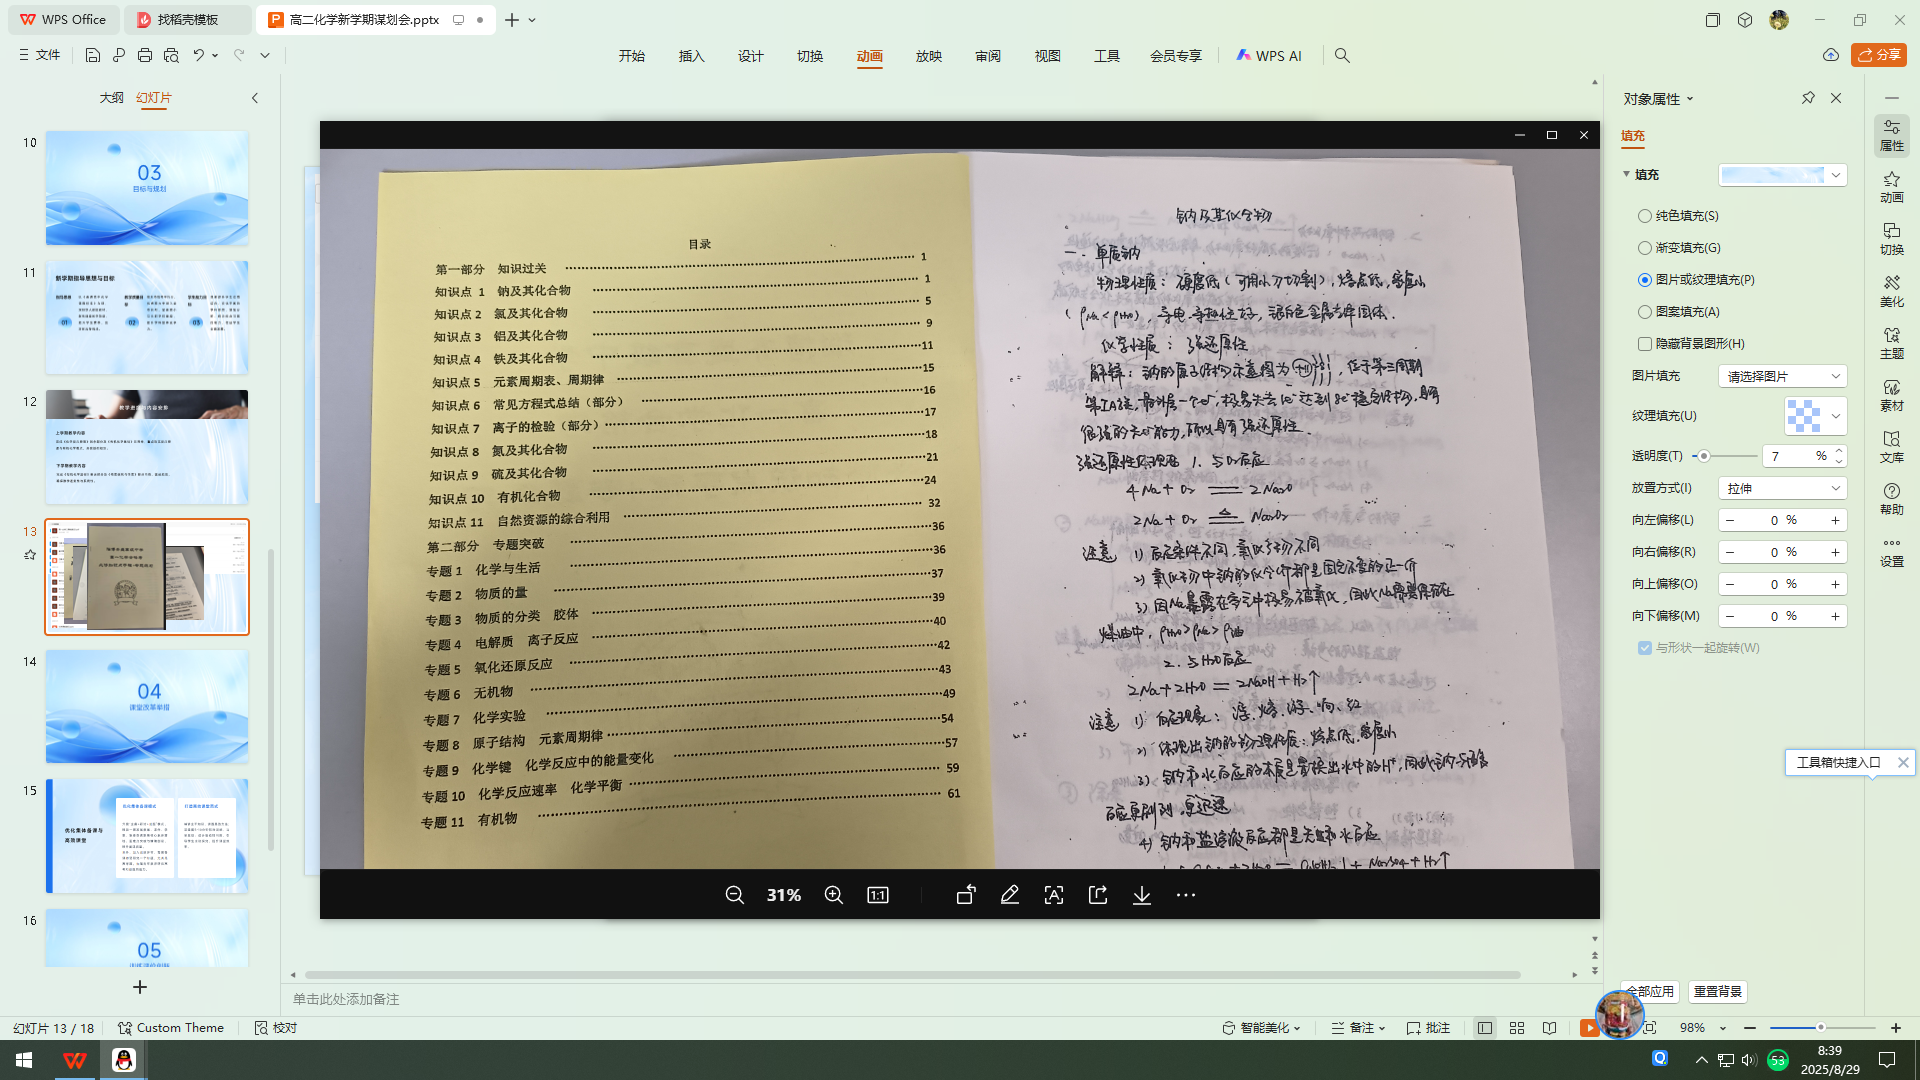 WPS Office
找稻壳模板
高二化学新学期谋划会.pptx
文件
开始 插入 设计 切换 动画 放映 审阅 视图 工具 会员专享 WPS AI
分享
大纲 幻灯片
10
03
目标与规划
11
新学期指导思想与目标
01 02 03
12
教学进度与内容安排
上学期教学内容
下学期教学内容
13
14
04
课堂改革举措
15
优化集体备课与
高效课堂
16
05
目录
第一部分 知识过关 1
知识点 1 钠及其化合物 1
知识点 2 氯及其化合物 5
知识点 3 铝及其化合物 9
知识点 4 铁及其化合物 11
知识点 5 元素周期表、周期律 15
知识点 6 常见方程式总结(部分) 16
知识点 7 离子的检验(部分) 17
知识点 8 氮及其化合物 18
知识点 9 硫及其化合物 21
知识点 10 有机化合物 24
知识点 11 自然资源的综合利用 32
第二部分 专题突破 36
专题 1 化学与生活 36
专题 2 物质的量 37
专题 3 物质的分类 胶体 39
专题 4 电解质 离子反应 40
专题 5 氧化还原反应 42
专题 6 无机物 43
专题 7 化学实验 49
专题 8 原子结构 元素周期律 54
专题 9 化学键 化学反应中的能量变化 57
专题 10 化学反应速率 化学平衡 59
专题 11 有机物 61
钠及其化合物
一. 单质钠
物理性质: 硬度低(可用小刀切割), 熔点低, 密度小
(ρNa < ρH2O), 导电、导热性好, 银白色金属光泽固体.
化学性质: 强还原性
解释: 钠的原子结构示意图为 +11 , 位于第三周期
第IA族, 最外层一个e⁻, 极易失去1e⁻达到8e⁻稳定结构, 具有
很强的失e⁻能力, 所以具有强还原性.
强还原性体现在 1. 与O2反应
4Na + O2 == 2Na2O
2Na + O2 =△= Na2O2
注意 1) 反应条件不同, 氧化产物不同
2) 氧化物中钠的化合价都是固定不变的正一价
3) 因Na暴露在空气中极易被氧化, 因此Na需要保存在
煤油中, ρH2O > ρNa > ρ油
2. 与H2O反应
2Na + 2H2O = 2NaOH + H2↑
注意 1) 反应现象: 浮、熔、游、响、红
2) 体现出钠的物理性质: 熔点低, 密度小
3) 钠和水反应的本质是置换出水中的H⁺, 因此钠与酸
反应更剧烈, 更迅速
4) 钠和盐溶液反应都是先和水反应
31%
1:1
单击此处添加备注
对象属性
填充
填充
纯色填充(S)
渐变填充(G)
图片或纹理填充(P)
图案填充(A)
隐藏背景图形(H)
图片填充 请选择图片
纹理填充(U)
透明度(T) 7 %
放置方式(I) 拉伸
向左偏移(L) − 0 % +
向右偏移(R) − 0 % +
向上偏移(O) − 0 % +
向下偏移(M) − 0 % +
与形状一起旋转(W)
全部应用 重置背景
属性
动画
切换
美化
主题
素材
文库
帮助
设置
工具箱快捷入口
幻灯片 13 / 18 Custom Theme 校对
智能美化 备注 批注 98%
53
8:39
2025/8/29